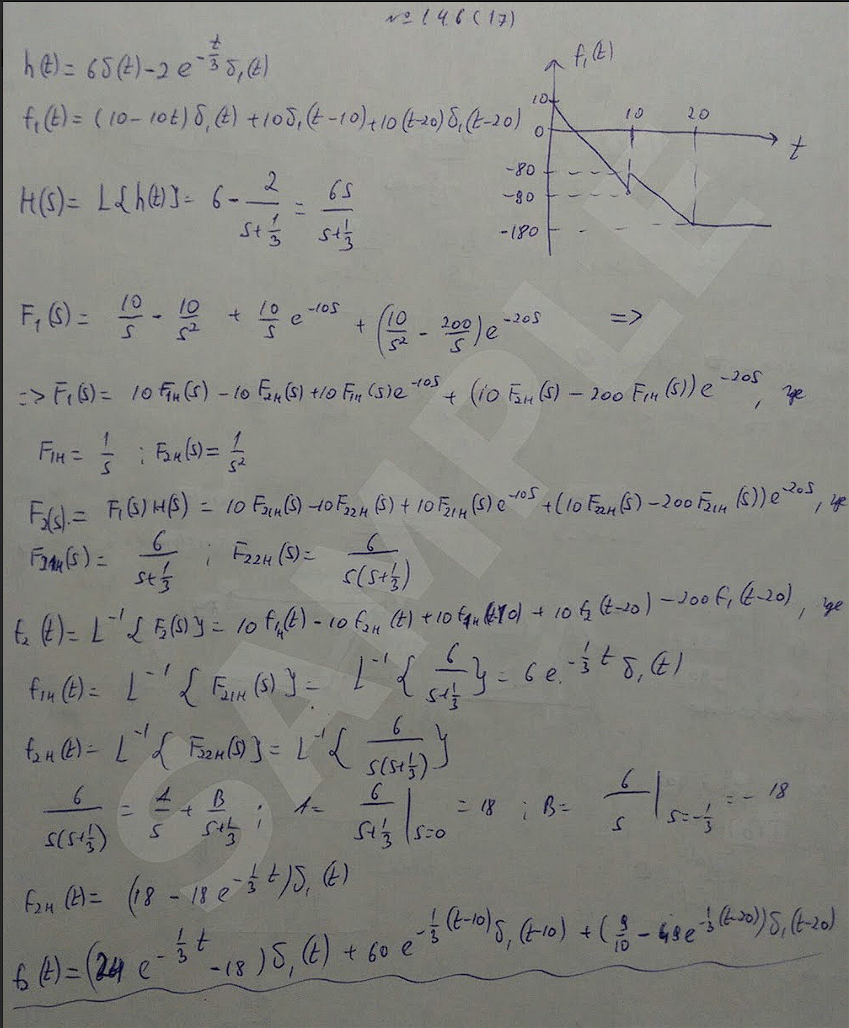 № 146 (17)
h(t) = 6δ(t) - 2e^{-t/3} δ₁(t)
f₁(t) = (10 - 10t) δ₁(t) + 10δ₁(t-10) + 10(t-20) δ₁(t-20)
f₁(t)
10
10 20
0
t
-80
-80
-180
H(s) = L{h(t)} = 6 - 2/(s+1/3) = 6s/(s+1/3)
F₁(s) = 10/s - 10/s² + 10/s e^{-10s} + (10/s² - 200/s) e^{-20s} =>
=> F₁(s) = 10 F₁н(s) - 10 F₂н(s) + 10 F₁н(s) e^{-10s} + (10 F₂н(s) - 200 F₁н(s)) e^{-20s}, где
F₁н = 1/s ; F₂н(s) = 1/s²
F₂(s) = F₁(s) H(s) = 10 F₂₁н(s) - 10 F₂₂н(s) + 10 F₂₁н(s) e^{-10s} + (10 F₂₂н(s) - 200 F₂₁н(s)) e^{-20s}, где
F₂₁н(s) = 6/(s+1/3) ; F₂₂н(s) = 6/(s(s+1/3))
f₂(t) = L⁻¹{F₂(s)} = 10 f₁н(t) - 10 f₂н(t) + 10 f₁н(t-10) + 10 f₂(t-20) - 200 f₁(t-20), где
f₁н(t) = L⁻¹{F₂₁н(s)} = L⁻¹{6/(s+1/3)} = 6 e^{-1/3 t} δ₁(t)
f₂н(t) = L⁻¹{F₂₂н(s)} = L⁻¹{6/(s(s+1/3))}
6/(s(s+1/3)) = A/s + B/(s+1/3) ; A = 6/(s+1/3) |_{s=0} = 18 ; B = 6/s |_{s=-1/3} = -18
f₂н(t) = (18 - 18 e^{-1/3 t}) δ₁(t)
(t) = (24 e^{-1/3 t} - 18) δ₁(t) + 60 e^{-1/3 (t-10)} δ₁(t-10) + (9/10 - e^{-1/3 (t-20)}) δ₁(t-20)
SAMPLE